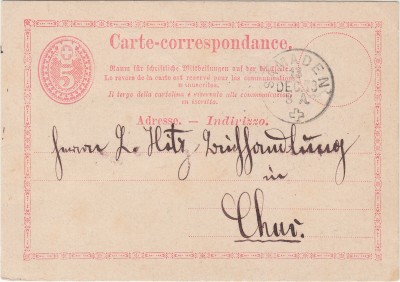 5
Carte-correspondance.
Raum für schriftliche Mittheilungen auf der Rückseite.
Le revers de la carte est réservé pour les communications
manuscrites.
Il tergo della cartolina è riservato alle comunicazioni
in iscritto.
DEC
Adresse. — Indirizzo.
Herren L. Hitz, Buchhandlung
in
Chur.